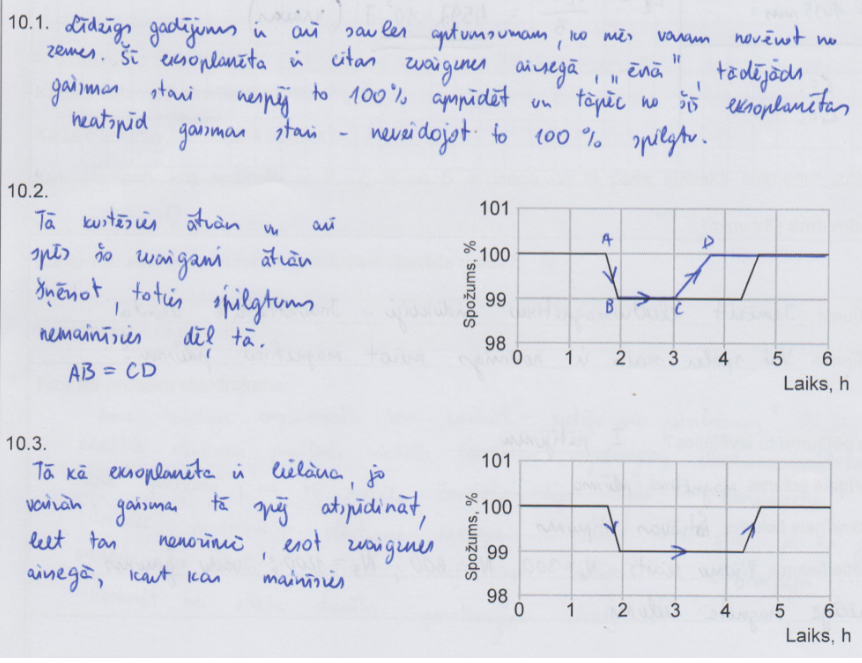 10.1. Līdzīgs gadījums ir arī saules aptumsumam, ko mēs varam novērot no
zemes. Šī eksoplanēta ir citas zvaigznes aizsegā, "ēnā", tādējāds
gaismas stari nespēj to 100% apspīdēt un tāpēc no šīs eksoplanētas
neatspīd gaismas stari - neveidojot to 100 % spilgtu.
10.2.
Tā kustēsies ātrāk un arī
spēs šo zvaigzni ātrāk
šķērsot, totiēs spilgtums
nemainīsies dēļ tā.
AB = CD
101
100
99
98
Spožums, %
A
B
C
D
0 1 2 3 4 5 6
Laiks, h
10.3.
Tā kā eksoplanēta ir lielāka, jo
vairāk gaismas tā spēj atspīdināt,
bet tas nenozīmē, esot zvaigznes
aizsegā, kaut kas mainīsies
101
100
99
98
Spožums, %
0 1 2 3 4 5 6
Laiks, h